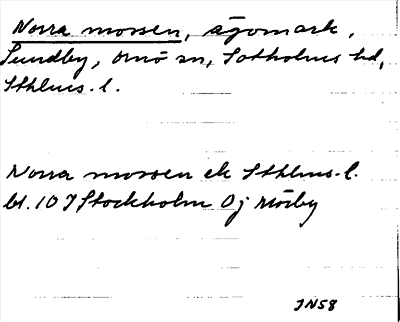 Norra mossen, ägomark,
Sundby, Ornö sn, Sotholms hd,
Sthlms. l.
Norra mossen ek Sthlms. l.
bl. 10 I Stockholm Oj Mörby
JN58